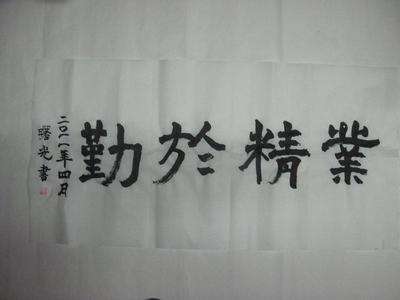 業精於勤
二〇一一年四月
曙光書